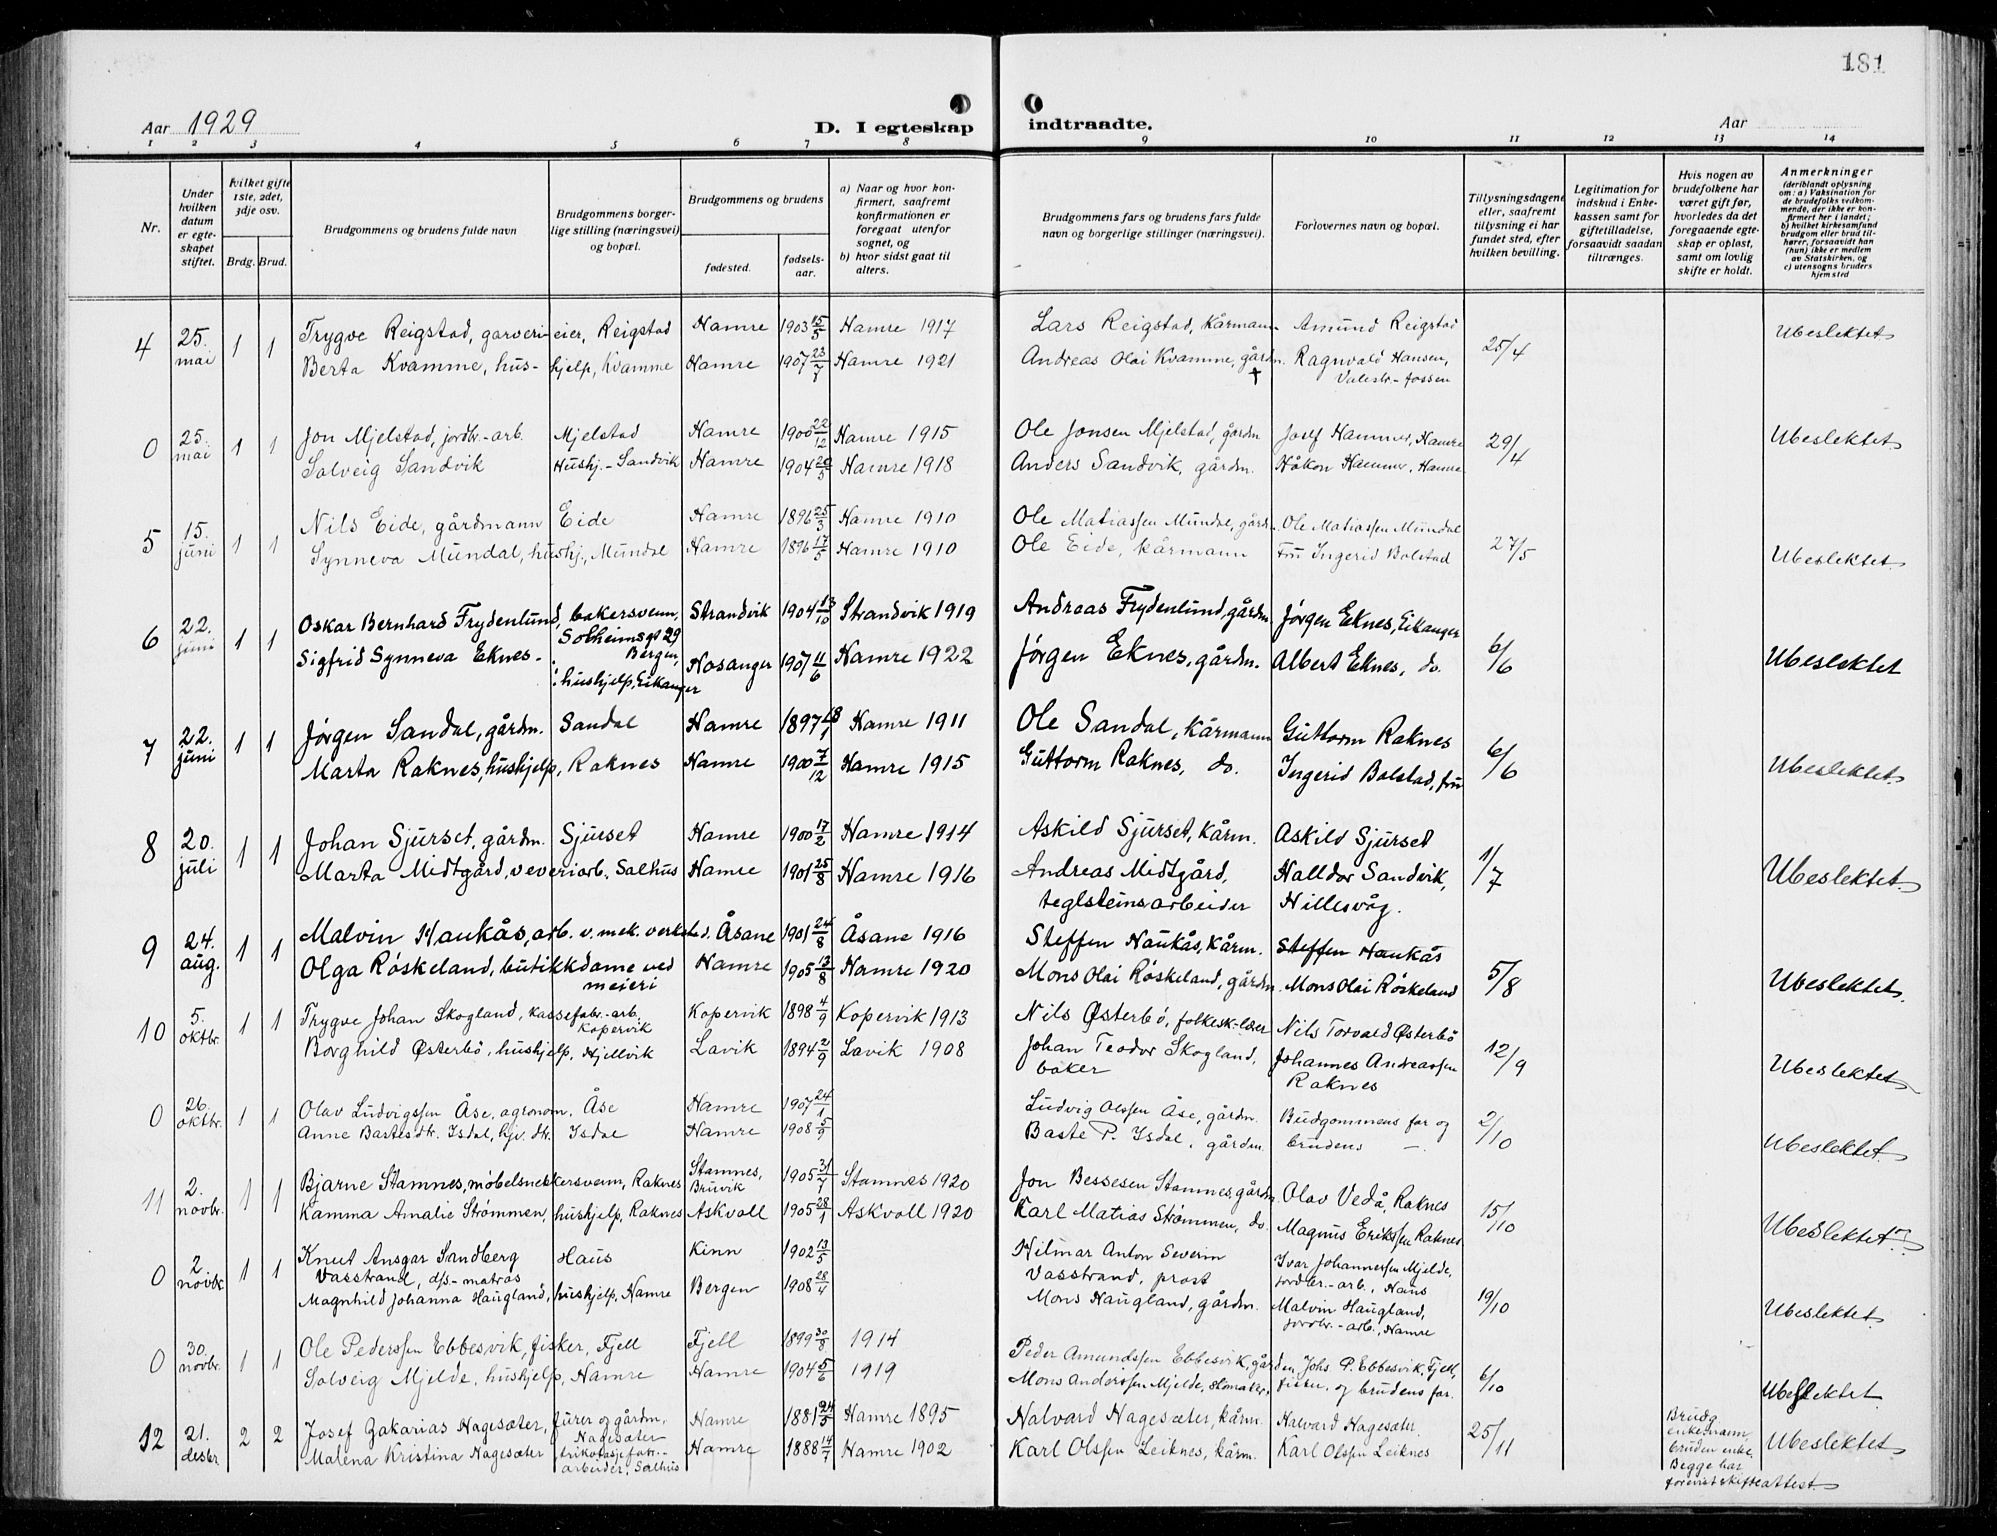 181
Aar 1929 D. I egteskap indtraadte. Aar
1 2 3 4 5 6 7 8 9 10 11 12 13 14
Nr.
Under hvilken datum er egteskapet stiftet.
Hvilket gifte 1ste, 2det, 3dje osv.
Brdg. Brud.
Brudgommens og brudens fulde navn
Brudgommens borgerlige stilling (næringsvei) og bopæl.
Brudgommens og brudens
fødested. fødselsaar.
a) Naar og hvor konfirmert, saafremt konfirmationen er foregaat utenfor sognet, og
b) hvor sidst gaat til alters.
Brudgommens fars og brudens fars fulde navn og borgerlige stillinger (næringsvei).
Forlovernes navn og bopæl.
Tillysningsdagene eller, saafremt tillysning ei har fundet sted, efter hvilken bevilling.
Legitimation for indskud i Enkekassen samt for giftetilladelse, forsaavidt saadan tiltrænges.
Hvis nogen av brudefolkene har været gift før, hvorledes da det foregaaende egteskap er opløst, samt om lovlig skifte er holdt.
Anmerkninger
(deriblandt oplysning om: a) Vaksination for de brudefolks vedkommende, der ikke er konfirmert her i landet; b) hvilket kirkesamfund brudgom eller brud tilhører, forsaavidt han (hun) ikke er medlem av Statskirken, og c) utensogns bruders hjemsted
4 25. mai 1 1 Trygve Reigstad, garverieier, Reigstad Hamre 1903 15/5 Hamre 1917 Lars Reigstad, kårmann Amund Reigstad 25/4 Ubeslektet
Berta Kvamme, hushjelp, Kvamme Hamre 1907 23/7 Hamre 1921 Andreas Olai Kvamme, gårdm. † Ragnvald Hansen, Valestr.-fossen
0 25. mai 1 1 Jon Mjelstad, jordbr.-arb. Mjelstad Hamre 1900 22/12 Hamre 1915 Ole Jonsen Mjelstad, gårdm Josef Hammer, Hamre 29/4 Ubeslektet
Solveig Sandvik Hushj.- Sandvik Hamre 1904 20/5 Hamre 1918 Anders Sandvik, gårdm. Håkon Hammer, Hamre
5 15. juni 1 1 Nils Eide, gårdmann Eide Hamre 1896 25/3 Hamre 1910 Ole Matiassen Mundal, gårdm. Ole Matiassen Mundal 27/5 Ubeslektet
Synneva Mundal, hushj., Mundal Hamre 1896 17/5 Hamre 1910 Ole Eide, kårmann Fru Ingerid Bolstad
6 22. juni 1 1 Oskar Bernhard Frydenlund, bakersvenn, Solheimsgt 29 Bergen, Strandvik 1904 13/10 Strandvik 1919 Andreas Frydenlund, gårdm. Jørgen Eknes, Eikanger 6/6 Ubeslektet
Sigfrid Synneva Eknes - hushjelp, Eikanger Hosanger 1907 11/6 Hamre 1922 Jørgen Eknes, gårdm. Albert Eknes, do.
7 22. juni 1 1 Jørgen Sandal, gårdm. Sandal Hamre 1897 Hamre 1911 Ole Sandal, kårmann Guttorm Raknes 6/6 Ubeslektet
Marta Raknes, hushjelp, Raknes Hamre 1900 7/12 Hamre 1915 Guttorm Raknes, do. Ingerid Bolstad, fru
8 20. juli 1 1 Johan Sjurset, gårdm. Sjurset Hamre 1900 17/2 Hamre 1914 Askild Sjurset, kårm. Askild Sjurset 1/7 Ubeslektet
Marta Midtgård, veveriarb. Salhus Hamre 1901 25/8 Hamre 1916 Andreas Midtgård, teglsteinsarbeider Halldor Sandvik, Hillesvåg.
9 24. aug. 1 1 Malvin Haukås, arb. v. mek. verksted. Åsane 1901 24/8 Åsane 1916 Steffen Haukås, kårm. Steffen Haukås 5/8 Ubeslektet.
Olga Røskeland, butikkdame ved meieri Hamre 1905 13/8 Hamre 1920 Mons Olai Røskeland, gårdm. Mons Olai Røskeland
10 5. oktbr. 1 1 Trygve Johan Skogland, kassefabr.-arb. Kopervik Kopervik 1898 4/9 Kopervik 1913 Nils Østerbö, folkesk-lærer Nils Torvald Østerbö 12/9 Ubeslektet
Borghild Østerbö, hushjelp, Hjellvik Lavik 1894 2/9 Lavik 1908 Johan Teodor Skogland, baker Johannes Andreassen Raknes
0 26. oktbr. 1 1 Olav Ludvigssen Åse, agronom, Åse Hamre 1907 24/1 Ludvig Olssen Åse, gårdm. Budgommens far og 2/10 Ubeslektet
Anne Bastesdtr. Isdal, hjv. dtr. Isdal Hamre 1908 5/9 Baste P. Isdal, gårdm brudens —
11 2. novbr. 1 1 Bjarne Stamnes, møbelsnekkersvenn, Raknes Stamnes, Bruvik 1905 31/7 Stamnes 1920 Jon Bessesen Stamnes, gårdm Olav Vedå, Raknes 15/10 Ubeslektet
Kamma Amalie Strømmen, hushjelp, Raknes Askvoll 1905 28/1 Askvoll 1920 Karl Matias Strømmen, do. Magnus Erikssen Raknes
0 2 novbr. 1 1 Knut Ansgar Sandberg Vasstrand, d/s-matros Haus Kinn 1902 13/5 Hilmar Anton Severin Vasstrand, prost Ivar Johannessen Mjelde, jordbr.-arb., Haus 19/10 Ubeslektet
Magnhild Johanna Haugland, hushjelp, Hamre Bergen 1908 28/4 Mons Haugland, gårdm. Malvin Haugland, jordbr.-arb., Hamre
0 30. novbr. 1 1 Ole Pederssen Ebbesvik, fisker, Fjell Fjell 1899 30/8 1914 Peder Amundssen Ebbesvik, gårdm, Johs P. Ebbesvik, Fjell, 6/10 Ubeslektet
Solveig Mjelde, hushjelp, Hamre Hamre 1904 5/6 1919 Mons Anderssen Mjelde, fisker, og brudens far.
12 21. desbr 2 2 Josef Zakarias Hagesæter, furer og gårdm, Hagesæter Hamre 1881 24/5 Hamre 1895 Halvard Hagesæter, kårm. Halvard Hagesæter 25/11 Brudg. enkemann, bruden enke. Begge har forevist skifteattest. Ubeslektet
Malena Kristina Hagesæter trikotasjefabr.-arbeider, Salhus Hamre 1888 14/7 Hamre 1902 Karl Olssen Leiknes, kårm. Karl Olssen Leiknes